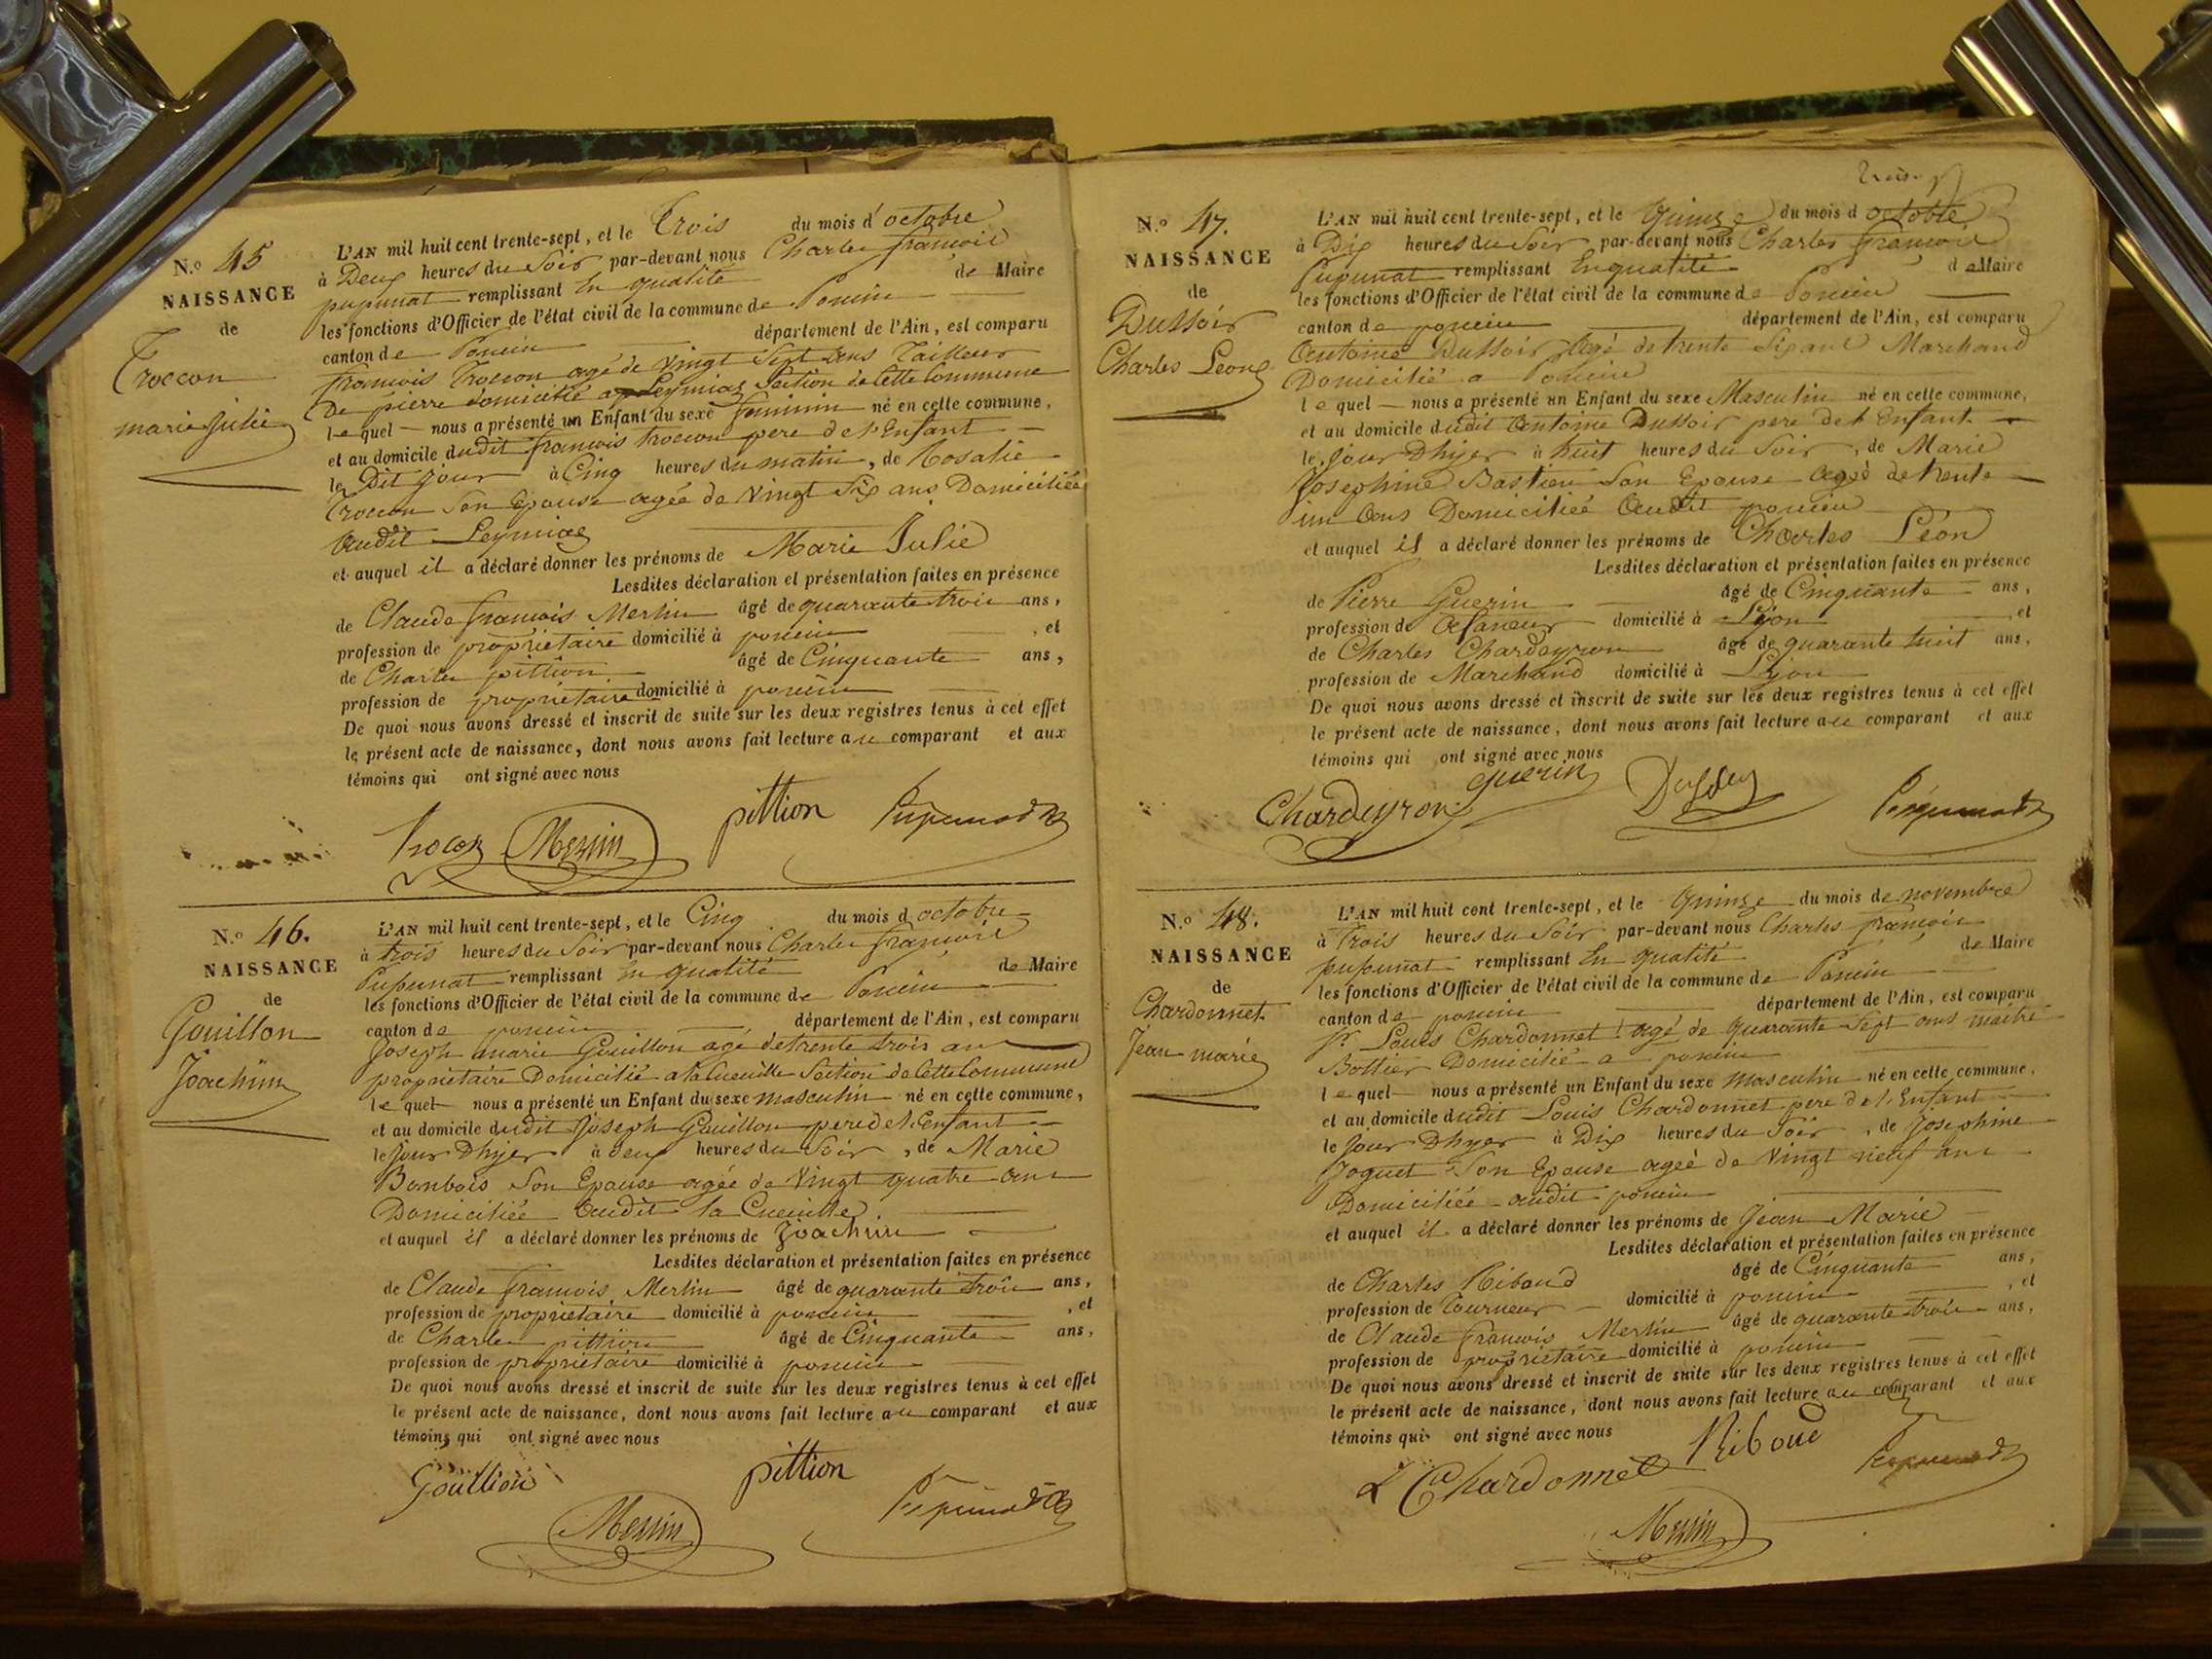 N.º 45
NAISSANCE
de
Troccon
marie julie
L'AN mil huit cent trente-sept, et le Trois du mois d'octobre
à Deux heures du Soir par-devant nous Charles françois
pupunat remplissant En qualité de Maire
les fonctions d'Officier de l'état civil de la commune de Poncin
canton de Poncin département de l'Ain, est comparu
françois Troccon agé de vingt Sept ans Tailleur
De pierre domicilié a Leymiat Section de Cette Commune
lequel nous a présenté un Enfant du sexe feminin né en cette commune,
et au domicile dudit françois troccon pere de l'Enfant
le Dit jour à Cinq heures du matin, de Rosalie
Troccon Son Epouse agée de Vingt Six ans Domiciliée
audit Leymiat
et auquel il a déclaré donner les prénoms de Marie Julie
Lesdites déclaration et présentation faites en présence
de Claude françois Merlin âgé de quarante trois ans,
profession de propriétaire domicilié à poncin, et
de Charles pittion âgé de Cinquante ans,
profession de propriétaire domicilié à poncin
De quoi nous avons dressé et inscrit de suite sur les deux registres tenus à cet effet
le présent acte de naissance, dont nous avons fait lecture au comparant et aux
témoins qui ont signé avec nous
Merlin pittion Pupunat
N.º 46.
NAISSANCE
de
Gouillon
Joachim
L'AN mil huit cent trente-sept, et le Cinq du mois d octobre
à trois heures du Soir par-devant nous Charles françois
Pupunat remplissant En qualité de Maire
les fonctions d'Officier de l'état civil de la commune de Poncin
canton de poncin département de l'Ain, est comparu
Joseph marie Gouillon agé de trente trois ans
propriétaire Domicilié a la Cueuille Section de Cette Commune
lequel nous a présenté un Enfant du sexe masculin né en cette commune,
et au domicile dudit Joseph Gouillon pere de l'Enfant
le jour Dhyer à deux heures du Soir, de Marie
Bonbois Son Epouse agée de Vingt quatre ans
Domiciliée audit la Cueuille
et auquel il a déclaré donner les prénoms de Joachim
Lesdites déclaration et présentation faites en présence
de Claude françois Merlin âgé de quarante trois ans,
profession de propriétaire domicilié à poncin, et
de Charles pittion âgé de Cinquante ans,
profession de propriétaire domicilié à poncin
De quoi nous avons dressé et inscrit de suite sur les deux registres tenus à cet effet
le présent acte de naissance, dont nous avons fait lecture au comparant et aux
témoins qui ont signé avec nous
Gouillon pittion Pupunat
Merlin
N.º 47.
NAISSANCE
de
Dussoir
Charles Leon
L'AN mil huit cent trente-sept, et le Quinze du mois d octobre
à Dix heures du Soir par-devant nous Charles françois
Pupunat remplissant En qualité de Maire
les fonctions d'Officier de l'état civil de la commune de Poncin
canton de poncin département de l'Ain, est comparu
Antoine Dussoir agé de trente Six ans Marchand
Domicilié a Poncin
lequel nous a présenté un Enfant du sexe Masculin né en cette commune,
et au domicile dudit Antoine Dussoir pere de l'Enfant
le Jour Dhyer à huit heures du Soir, de Marie
Josephine Bastien Son Epouse agée de trente
un ans Domiciliée audit poncin
et auquel il a déclaré donner les prénoms de Charles Léon
Lesdites déclaration et présentation faites en présence
de Pierre Guerin âgé de Cinquante ans,
profession de domicilié à Lyon, et
de Charles Chardeyron âgé de quarante huit ans,
profession de Marchand domicilié à Lyon
De quoi nous avons dressé et inscrit de suite sur les deux registres tenus à cet effet
le présent acte de naissance, dont nous avons fait lecture au comparant et aux
témoins qui ont signé avec nous
Chardeyron guerin Pupunat
N.º 48.
NAISSANCE
de
Chardonnet
Jean marie
L'AN mil huit cent trente-sept, et le Quinze du mois de novembre
à Trois heures du Soir par-devant nous Charles françois
pupunat remplissant En qualité de Maire
les fonctions d'Officier de l'état civil de la commune de Poncin
canton de poncin département de l'Ain, est comparu
Sr. Louis Chardonnet agé de quarante Sept ans maitre
Bottier Domicilié a poncin
lequel nous a présenté un Enfant du sexe masculin né en cette commune,
et au domicile dudit Louis Chardonnet pere de l'Enfant
le Jour Dhyer à Dix heures du Soir, de josephine
Joguet Son Epouse agée de Vingt neuf ans
Domiciliée audit poncin
et auquel il a déclaré donner les prénoms de Jean Marie
Lesdites déclaration et présentation faites en présence
de Charles Riboud âgé de Cinquante ans,
profession de Tourneur domicilié à poncin, et
de Claude françois Merlin âgé de quarante trois ans,
profession de propriétaire domicilié à poncin
De quoi nous avons dressé et inscrit de suite sur les deux registres tenus à cet effet
le présent acte de naissance, dont nous avons fait lecture au comparant et aux
témoins qui ont signé avec nous
L Chardonnet Riboud Pupunat
Merlin